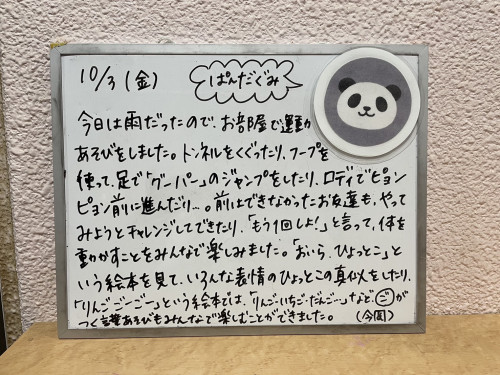 10/3(金)
ぱんだぐみ
今日は雨だったので、お部屋で運動
あそびをしました。トンネルをくぐったり、フープを
使って、足で「グーパー」のジャンプをしたり、ロディでピョン
ピョン前に進んだり…。前はできなかったお友達も、やって
みようとチャレンジしてできたり、「もう1回しよ!」と言って、体を
動かすことをみんなで楽しみました。「おいら、ひょっとこ」と
いう絵本を見て、いろんな表情のひょっとこの真似をしたり、
「りんごごーごー」という絵本では、「りんご・いちご・だんご…」など、ごが
つく言葉あそびもみんなで楽しむことができました。